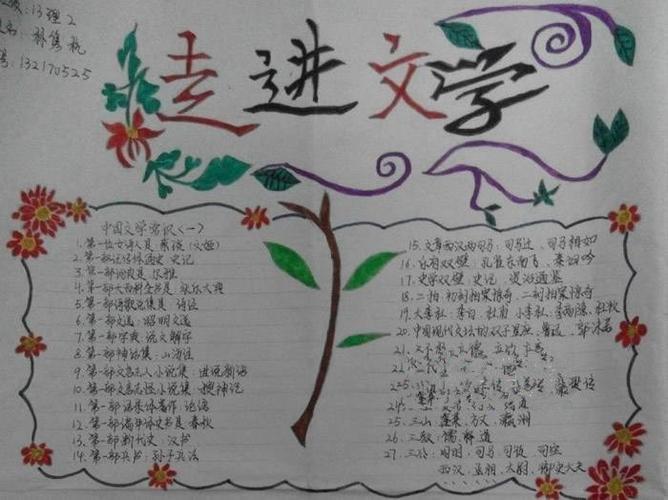 班级:13理2
姓名:孙隽
号:132170525
走进文学
中国文学常识(一)
1.第一位女诗人是:蔡琰(文姬)
2.第一部纪传体通史:史记
3.第一部词典是:尔雅
4.第一部大百科全书是:永乐大典
5.第一部诗歌总集是:诗经
6.第一部文选:昭明文选
7.第一部字典:说文解字
8.第一部神话集:山海经
9.第一部文言志人小说集:世说新语
10.第一部文言志怪小说集:搜神记
11.第一部语录体著作:论语
12.第一部编年体史书是:春秋
13.第一部断代史:汉书
14.第一部兵书:孙子兵法
15.文章西汉两司马:司马迁、司马相如
16.乐府双壁:孔雀东南飞、秦妇吟
17.史学双壁:史记、资治通鉴
18.二拍:初刻拍案惊奇、二刻拍案惊奇
19.大李杜:李白、杜甫 小李杜:李商隐、杜牧
20.中国现代文坛的双子星座:鲁迅、郭沫若
21.
22.
25.三山:蓬莱、方丈、瀛洲
26.三教:儒、释、道
27.三公:周朝:司马、司徒、司空
西汉:丞相、太尉、御史大夫